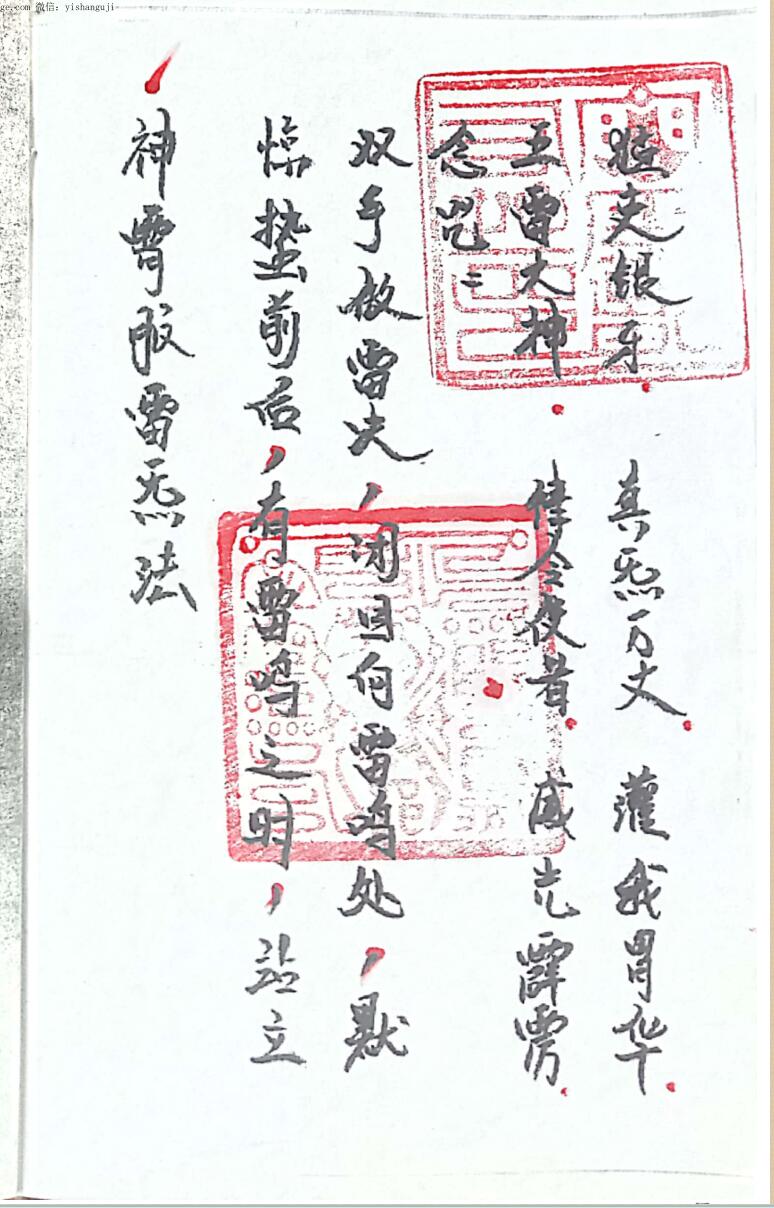 ge.com 微信: yishanguji-
神霄取雷炁法
惊蛰前后，有雷鸣之时，站立
双手放雷决，闭目向雷鸣处，默
念咒：
五雷大神。律令使者。威光霹雳。
吏银牙。真炁万丈。灌我胃华。